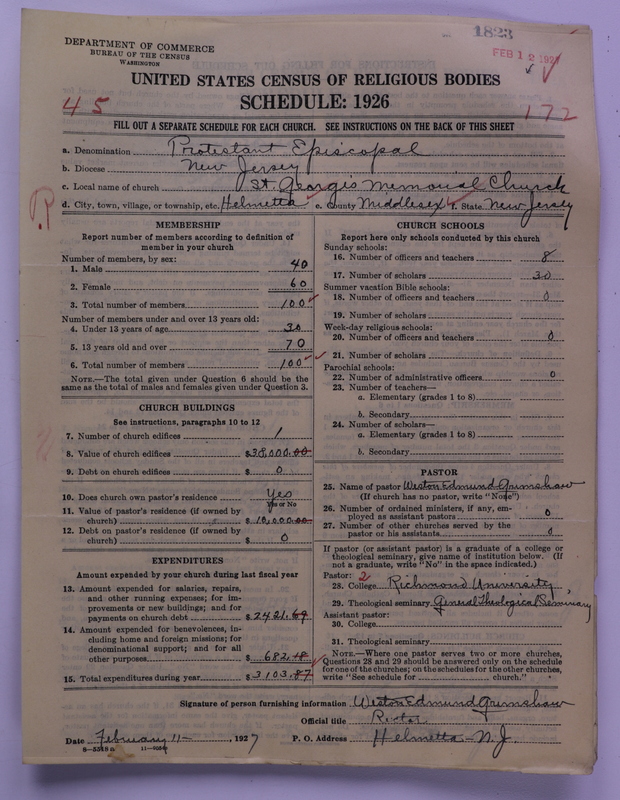 1823
FEB 12 192
DEPARTMENT OF COMMERCE
BUREAU OF THE CENSUS
WASHINGTON
UNITED STATES CENSUS OF RELIGIOUS BODIES
SCHEDULE: 1926
45
172
FILL OUT A SEPARATE SCHEDULE FOR EACH CHURCH. SEE INSTRUCTIONS ON THE BACK OF THIS SHEET
a. Denomination Protestant Episcopal
b. Diocese New Jersey
c. Local name of church St. George's Memorial Church
d. City, town, village, or township, etc. Helmetta e. County Middlesex f. State New Jersey
MEMBERSHIP
Report number of members according to definition of
member in your church
Number of members, by sex:
1. Male 40
2. Female 60
3. Total number of members 100
Number of members under and over 13 years old:
4. Under 13 years of age 30
5. 13 years old and over 70
6. Total number of members 100
NOTE.—The total given under Question 6 should be the
same as the total of males and females given under Question 3.
CHURCH BUILDINGS
See instructions, paragraphs 10 to 12
7. Number of church edifices 1
8. Value of church edifices $38,000.00
9. Debt on church edifices $ 0
10. Does church own pastor's residence Yes
Yes or No
11. Value of pastor's residence (if owned by
church) $ 10,000.00
12. Debt on pastor's residence (if owned by
church) $ 0
EXPENDITURES
Amount expended by your church during last fiscal year
13. Amount expended for salaries, repairs,
and other running expenses; for im-
provements or new buildings; and for
payments on church debt $ 2421.69
14. Amount expended for benevolences, in-
cluding home and foreign missions; for
denominational support; and for all
other purposes $ 682.18
15. Total expenditures during year $ 3103.87
CHURCH SCHOOLS
Report here only schools conducted by this church
Sunday schools:
16. Number of officers and teachers 8
17. Number of scholars 30
Summer vacation Bible schools:
18. Number of officers and teachers 0
19. Number of scholars
Week-day religious schools:
20. Number of officers and teachers 0
21. Number of scholars
Parochial schools:
22. Number of administrative officers 0
23. Number of teachers—
a. Elementary (grades 1 to 8)
b. Secondary
24. Number of scholars—
a. Elementary (grades 1 to 8)
b. Secondary
PASTOR
25. Name of pastor Weston Edmund Grimshaw
(If church has no pastor, write "None")
26. Number of ordained ministers, if any, em-
ployed as assistant pastors 0
27. Number of other churches served by the
pastor or his assistants 0
If pastor (or assistant pastor) is a graduate of a college or
theological seminary, give name of institution below. (If
not a graduate, write "No" in the space indicated.)
Pastor: 2
28. College Richmond University
29. Theological seminary General Theological Seminary
Assistant pastor:
30. College
31. Theological seminary
NOTE.—Where one pastor serves two or more churches,
Questions 28 and 29 should be answered only on the schedule
for one of the churches; on the schedules for the other churches,
write "See schedule for church."
Signature of person furnishing information Weston Edmund Grimshaw
Official title Rector
Date February 11-, 1927 P. O. Address Helmetta - N. J.